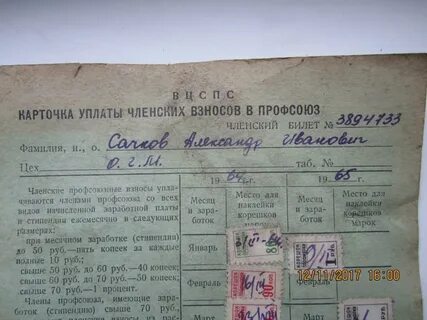 ВЦСПС
КАРТОЧКА УПЛАТЫ ЧЛЕНСКИХ ВЗНОСОВ В ПРОФСОЮЗ
ЧЛЕНСКИЙ БИЛЕТ № 3894733
Фамилия, и., о. Сачков Александр Иванович
Цех О.Г.М. таб. №
1964 г. 1965 г.
Членские профсоюзные взносы упла-
чиваются членами профсоюза со всех
видов начисленной заработной платы
и стипендии ежемесячно в следующих
размерах:
при месячном заработке (стипендии)
до 50 руб.—пять копеек за каждые
полные 10 руб.;
свыше 50 руб. до 60 руб. —40 копеек;
свыше 60 руб. до 70 руб. —50 копеек;
свыше 70 руб. — 1 процент.
Члены профсоюза, имеющие зарабо-
Месяц и зара- боток
Место для наклейки корешков марок
Месяц и зара- боток
Место для наклейки корешков марок
Январь
Февраль
Март
Февраль
Март
12/11/2017 16:00